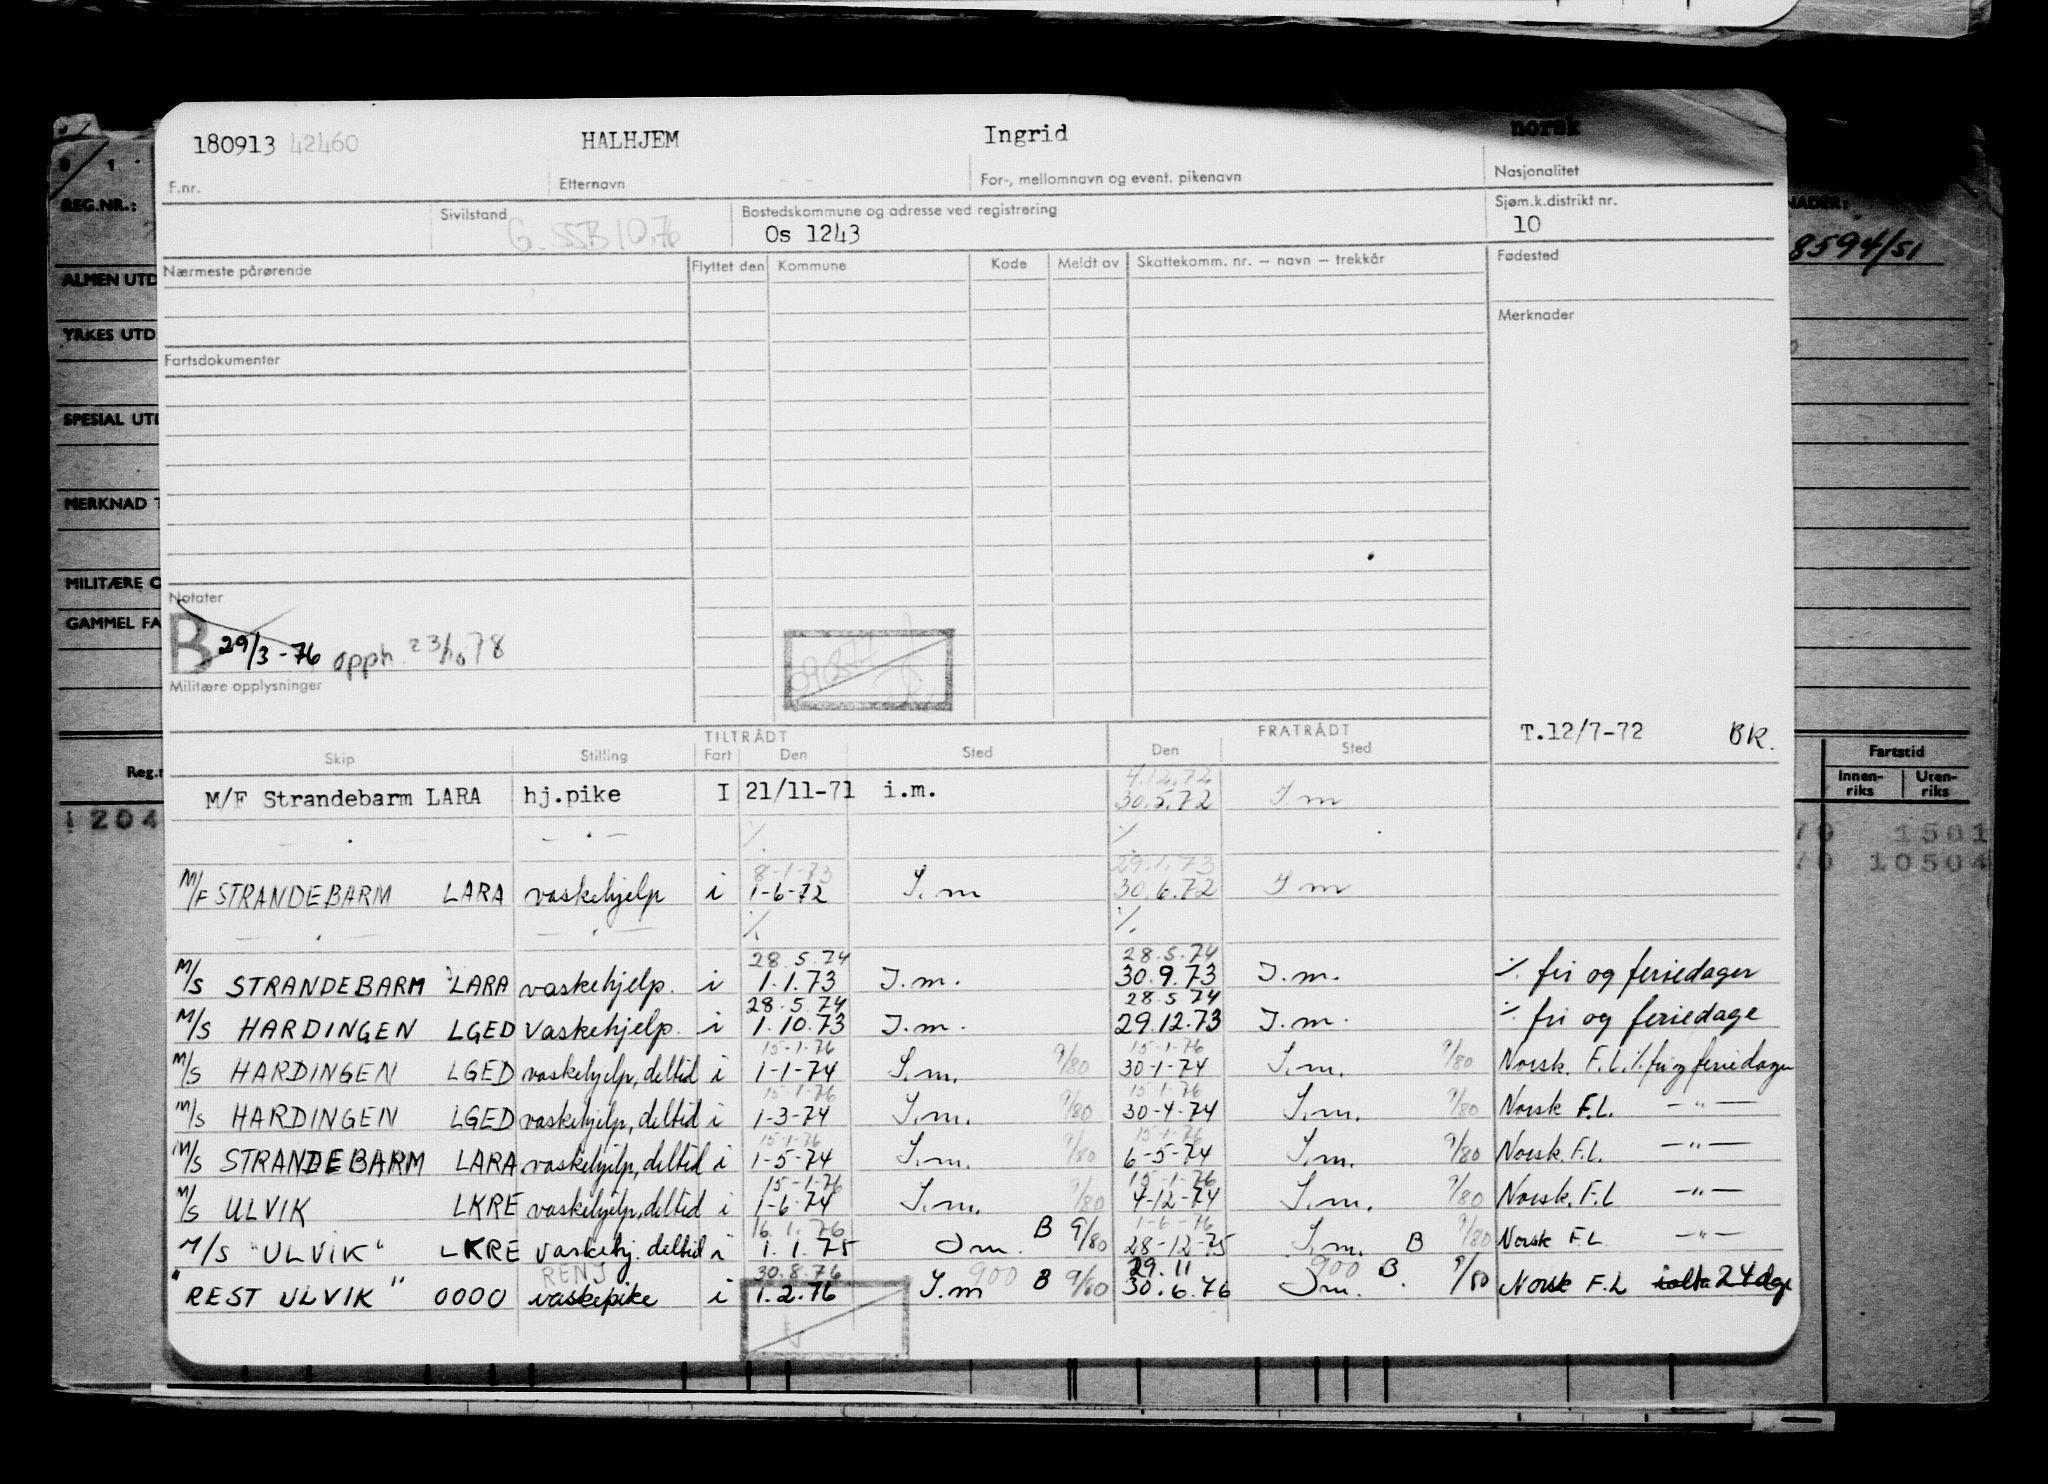 180913 42460 HALHJEM Ingrid norsk
F.nr. Etternavn For-, mellomnavn og event. pikenavn Nasjonalitet
Sivilstand Bostedskommune og adresse ved registrering Sjøm.k.distrikt nr.
G. SSB 10.76 Os 1243 10
Nærmeste pårørende Flyttet den Kommune Kode Meldt av Skattekomm. nr. — navn — trekkår Fødested
Merknader
Fartsdokumenter
Notater
B 29/3-76 opph. 23/10 78
Militære opplysninger
T.12/7-72 BK.
TILTRÅDT FRATRÅDT
Skip Stilling Fart Den Sted Den Sted
4.12.72
M/F Strandebarm LARA hj.pike I 21/11-71 i.m. 30.5.72 I m
— . — — . — ./. ./.
8-1-73 29.1.73
M/F STRANDEBARM LARA vaskehjelp i 1-6-72 I.m 30.6.72 I m
— . — — . — ./. ./.
28.5.74 28.5.74
M/S STRANDEBARM LARA vaskehjelp. i 1.1.73 I.m. 30.9.73 I.m. ./. fri og feriedager
28.5.74 28.5.74
M/S HARDINGEN LGED Vaskehjelp. i 1.10.73 I.m. 29.12.73 I.m. ./. fri og feriedage
15-1-76 15-1-76
M/S HARDINGEN LGED vaskehjelp, deltid i 1-1-74 I.m. 9/80 30-1-74 I.m. 9/80 Norsk. F.L. ./. fri og feriedager
15-1-76 15-1-76
M/S HARDINGEN LGED vaskehjelp, deltid i 1-3-74 I.m. 9/80 30-4-74 I.m. 9/80 Norsk F.L. — " —
15-1-76 15-1-76
M/S STRANDEBARM LARA vaskehjelp, deltid i 1-5-74 I.m. 9/80 6-5-74 I.m. 9/80 Norsk. F.L. — " —
15-1-76 15-1-76
M/S ULVIK LKRE vaskehjelp, deltid i 1-6-74 I.m. 9/80 4-12-74 I.m. 9/80 Norsk. F.L — " —
16.1.76 1-6-76
M/S "ULVIK" LKRE vaskehj. deltid i 1.1.75 I m. B 9/80 28-12-75 I.m. B 9/80 Norsk F.L. — " —
RENJ 30.8.76 900 29.11 900
"REST ULVIK" 0000 vaskepike i 1.2.76 I.m B 9/80 30.6.76 I m. B 9/80 Norsk F.L ialta 24 dge
REG.NR.:
ALMEN UTD
YRKES UTD
SPESIAL UTD
MERKNAD T
MILITÆRE O
GAMMEL FA
Reg.n
1204
NADER:
8594/51
Fartstid
Innen-riks Uten-riks
70 1501
70 10504